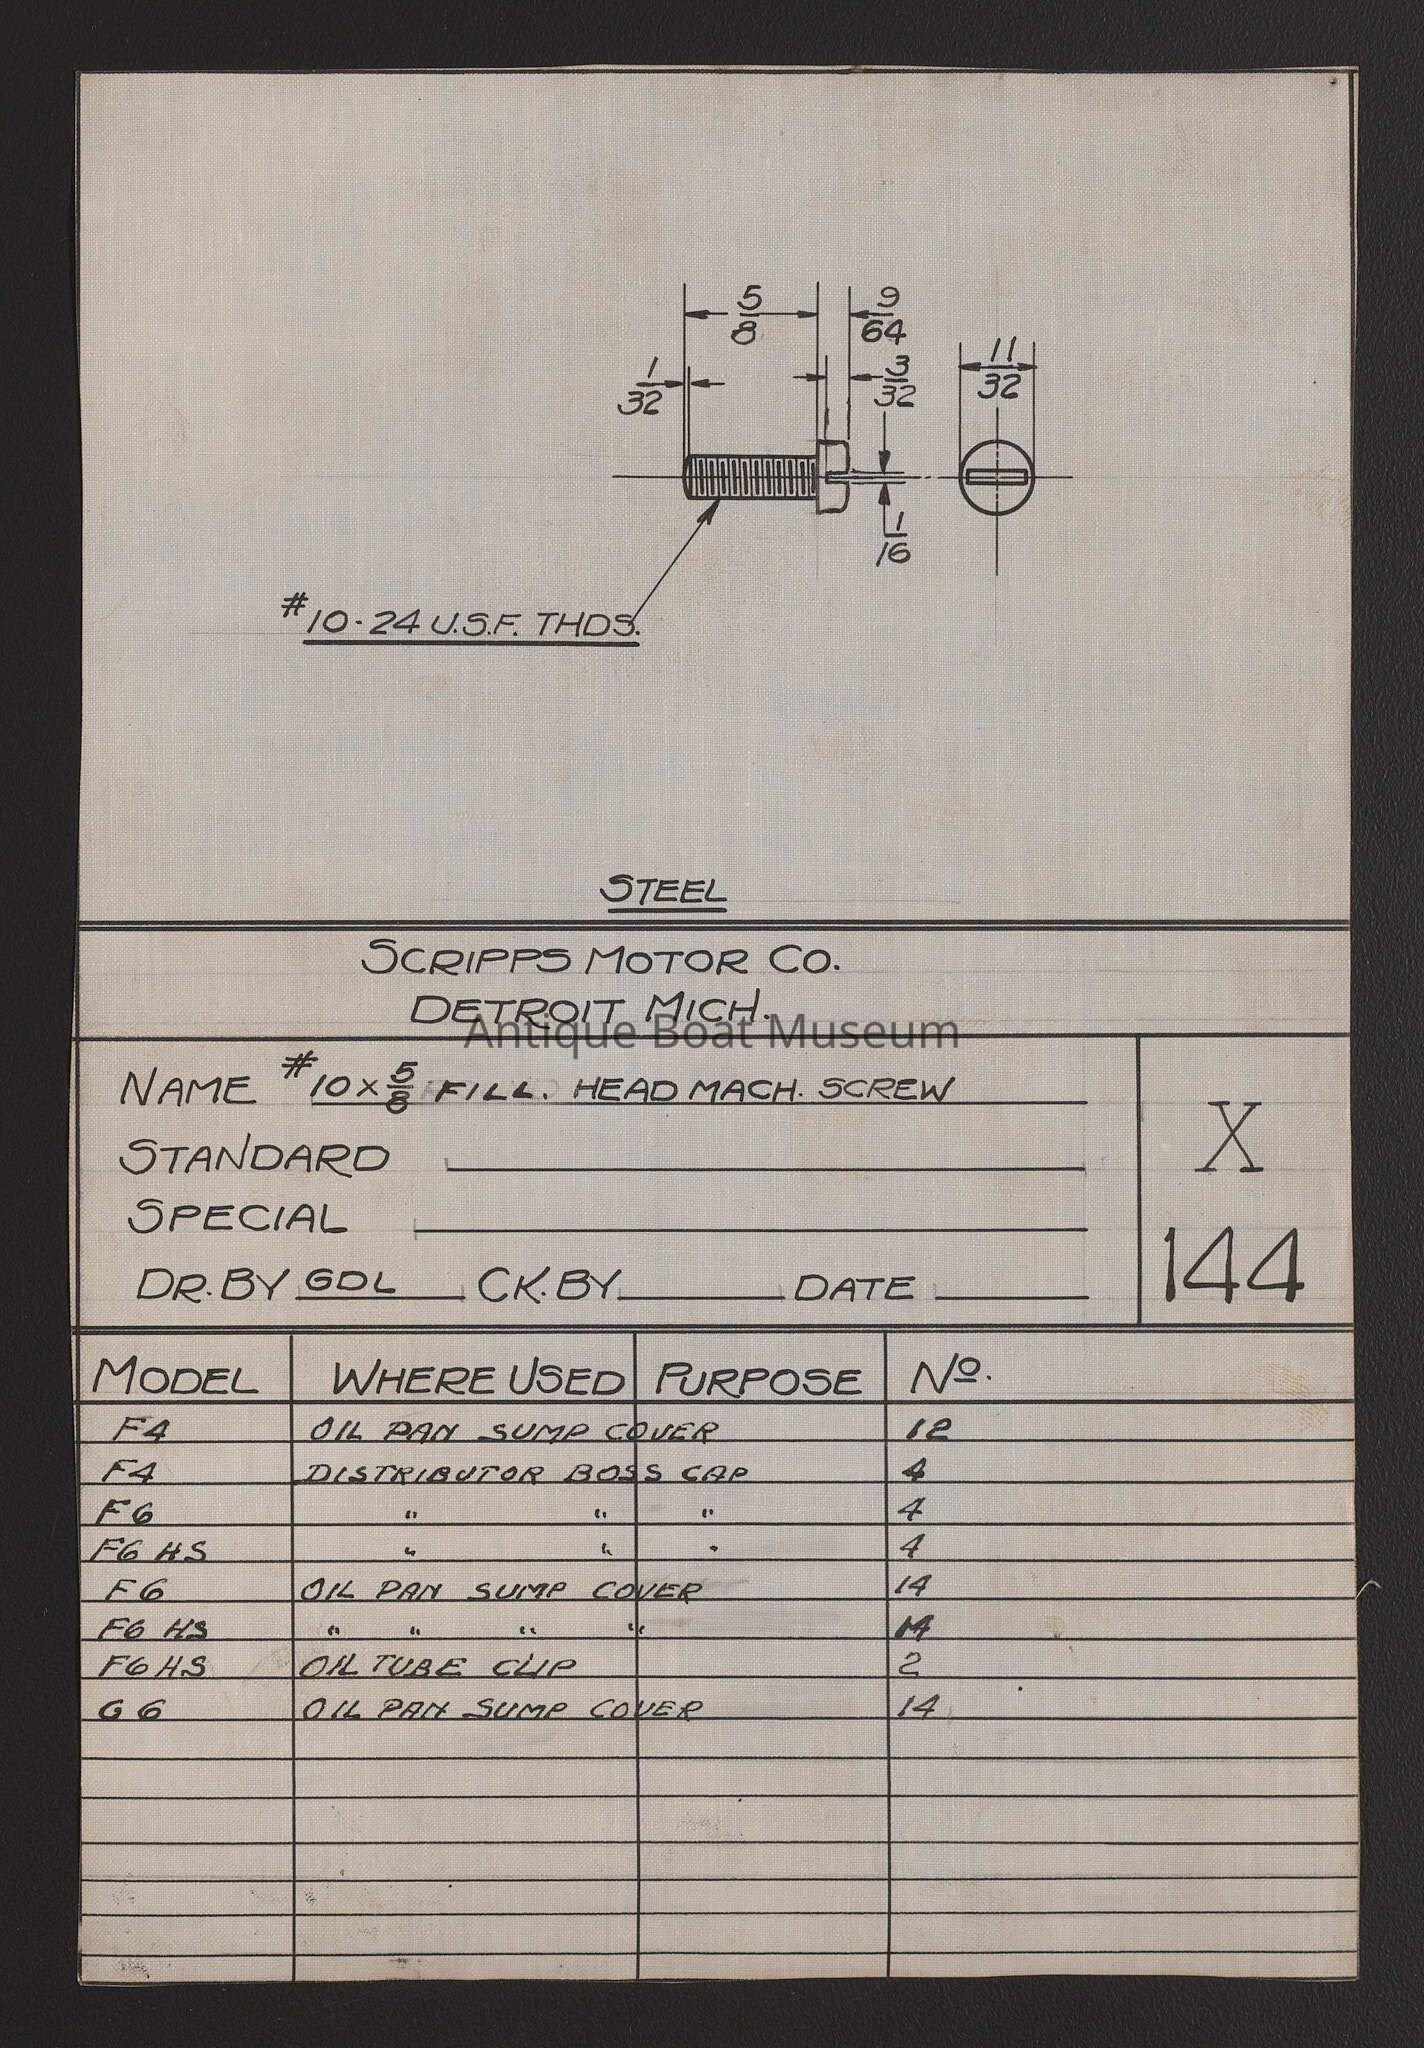 5/8
9/64
1/32
3/32
11/32
1/16
#10-24 U.S.F. THDS.
STEEL
SCRIPPS MOTOR CO.
DETROIT MICH.
Antique Boat Museum
NAME #10 x 5/8 FILL. HEAD MACH. SCREW
STANDARD
SPECIAL
DR. BY GDL CK. BY DATE
X
144
MODEL WHERE USED PURPOSE No.
F4 OIL PAN SUMP COVER 12
F4 DISTRIBUTOR BOSS CAP 4
F6 " " " 4
F6 HS " " " 4
F6 OIL PAN SUMP COVER 14
F6 HS " " " " 14
F6 HS OIL TUBE CLIP 2
G6 OIL PAN SUMP COVER 14